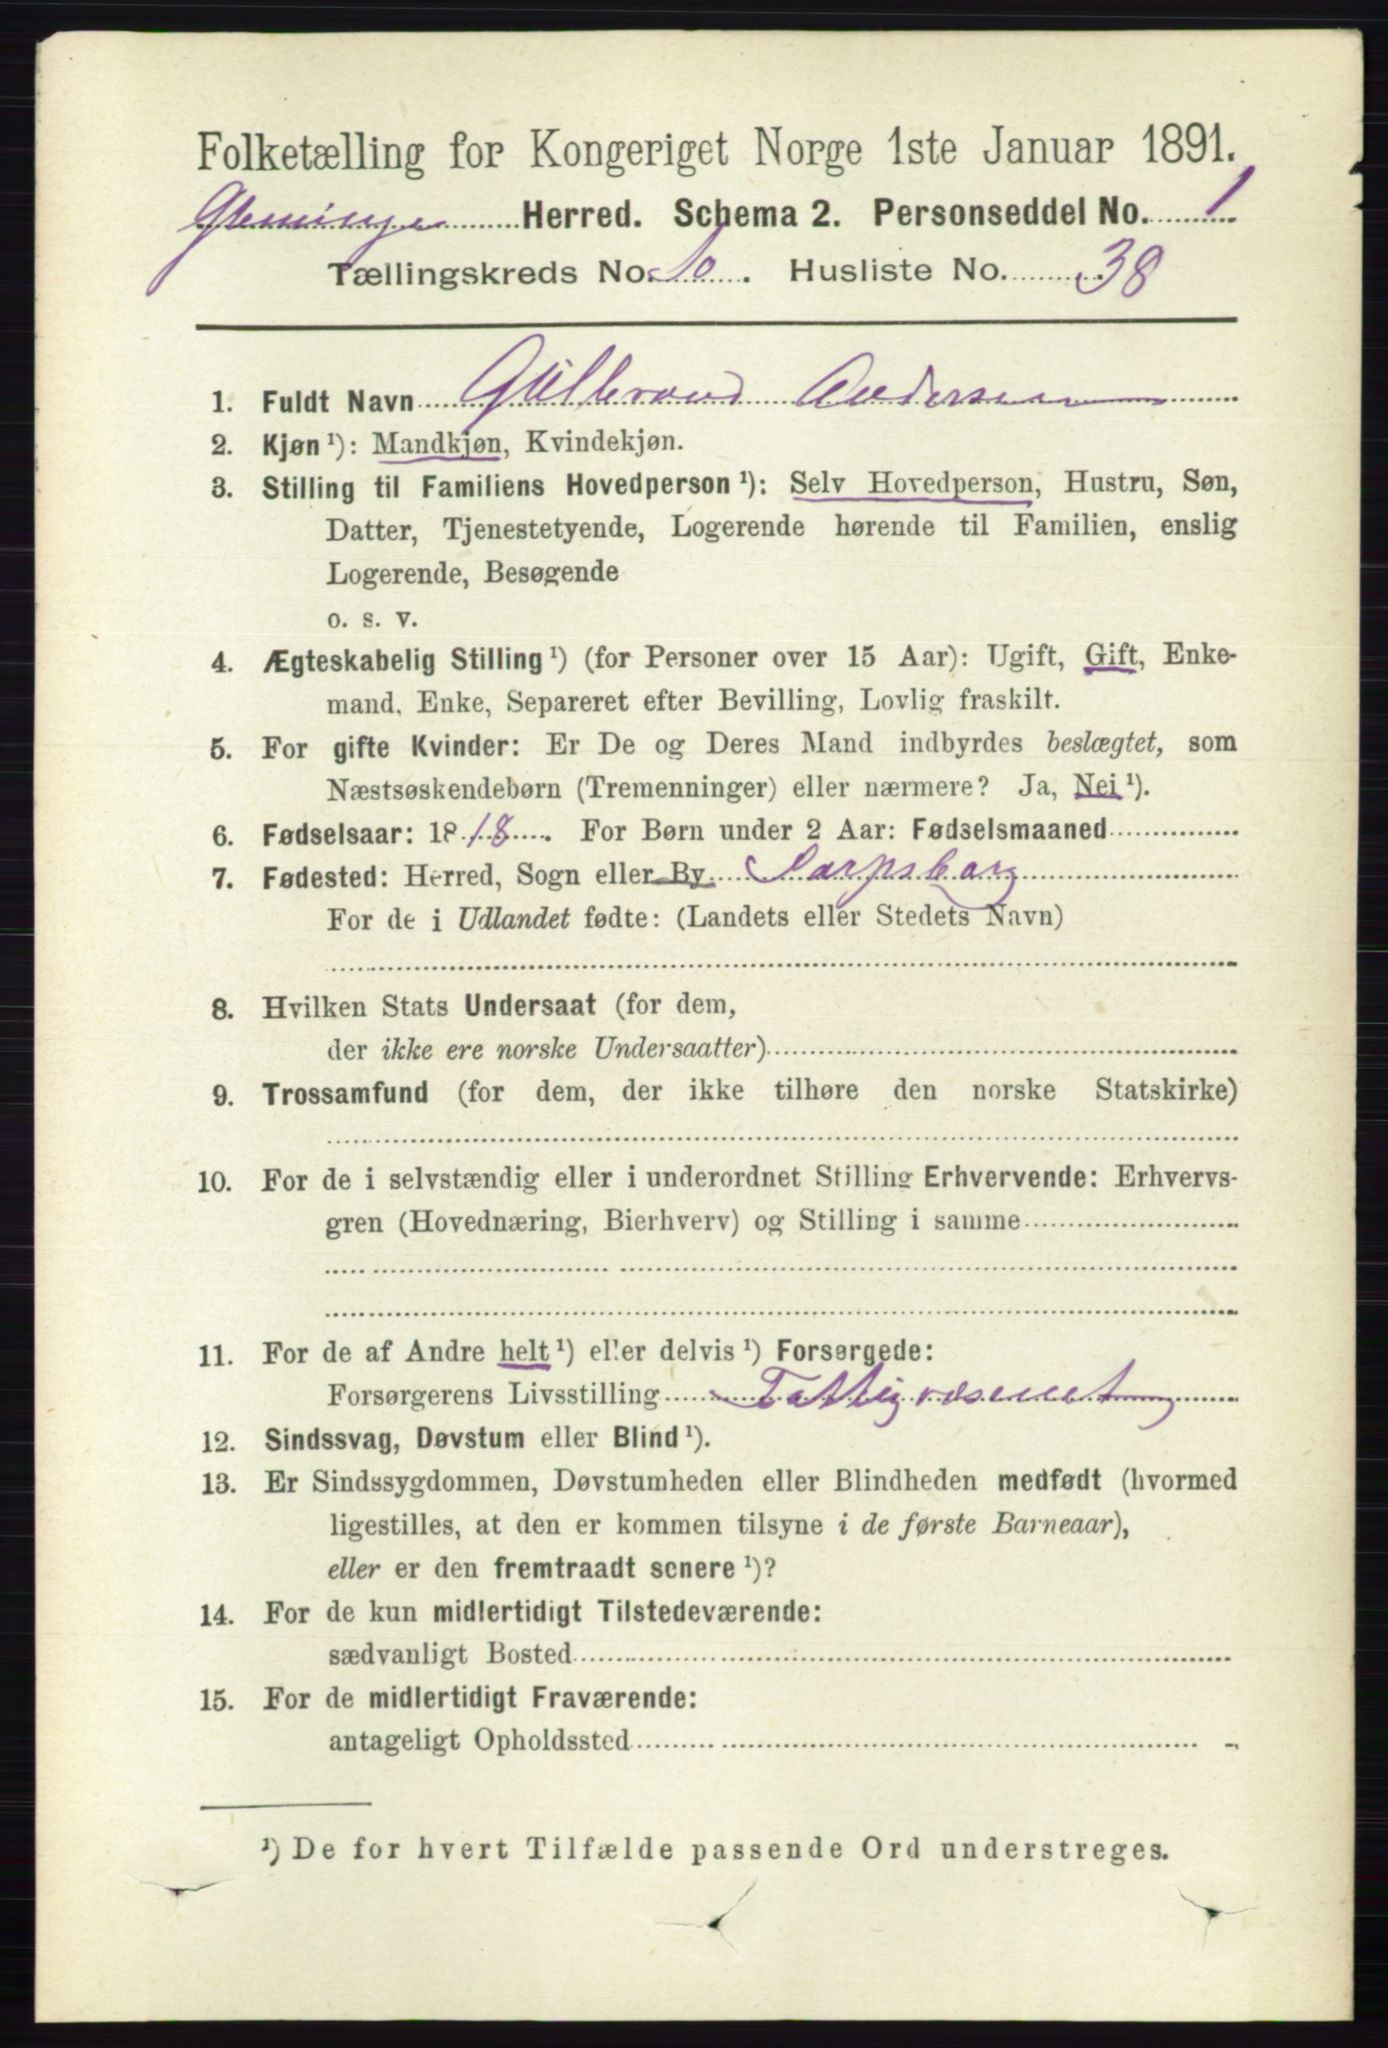 Folketælling for Kongeriget Norge 1ste Januar 1891.
Glemminge Herred. Schema 2. Personseddel No. 1
Tællingskreds No. 10. Husliste No. 38
1. Fuldt Navn Gulbrand Andersen
2. Kjøn ¹): Mandkjøn, Kvindekjøn.
3. Stilling til Familiens Hovedperson ¹): Selv Hovedperson, Hustru, Søn,
Datter, Tjenestetyende, Logerende hørende til Familien, enslig
Logerende, Besøgende
o. s. v.
4. Ægteskabelig Stilling ¹) (for Personer over 15 Aar): Ugift, Gift, Enke-
mand, Enke, Separeret efter Bevilling, Lovlig fraskilt.
5. For gifte Kvinder: Er De og Deres Mand indbyrdes beslægtet, som
Næstsøskendebørn (Tremenninger) eller nærmere? Ja, Nei ¹).
6. Fødselsaar: 1818. For Børn under 2 Aar: Fødselsmaaned
7. Fødested: Herred, Sogn eller By Sarpsborg
For de i Udlandet fødte: (Landets eller Stedets Navn)
8. Hvilken Stats Undersaat (for dem,
der ikke ere norske Undersaatter)
9. Trossamfund (for dem, der ikke tilhøre den norske Statskirke)
10. For de i selvstændig eller i underordnet Stilling Erhvervende: Erhvervs-
gren (Hovednæring, Bierhverv) og Stilling i samme
11. For de af Andre helt ¹) eller delvis ¹) Forsørgede:
Forsørgerens Livsstilling Fattigvæsenet
12. Sindssvag, Døvstum eller Blind ¹).
13. Er Sindssygdommen, Døvstumheden eller Blindheden medfødt (hvormed
ligestilles, at den er kommen tilsyne i de første Barneaar),
eller er den fremtraadt senere ¹)?
14. For de kun midlertidigt Tilstedeværende:
sædvanligt Bosted
15. For de midlertidigt Fraværende:
antageligt Opholdssted
¹) De for hvert Tilfælde passende Ord understreges.